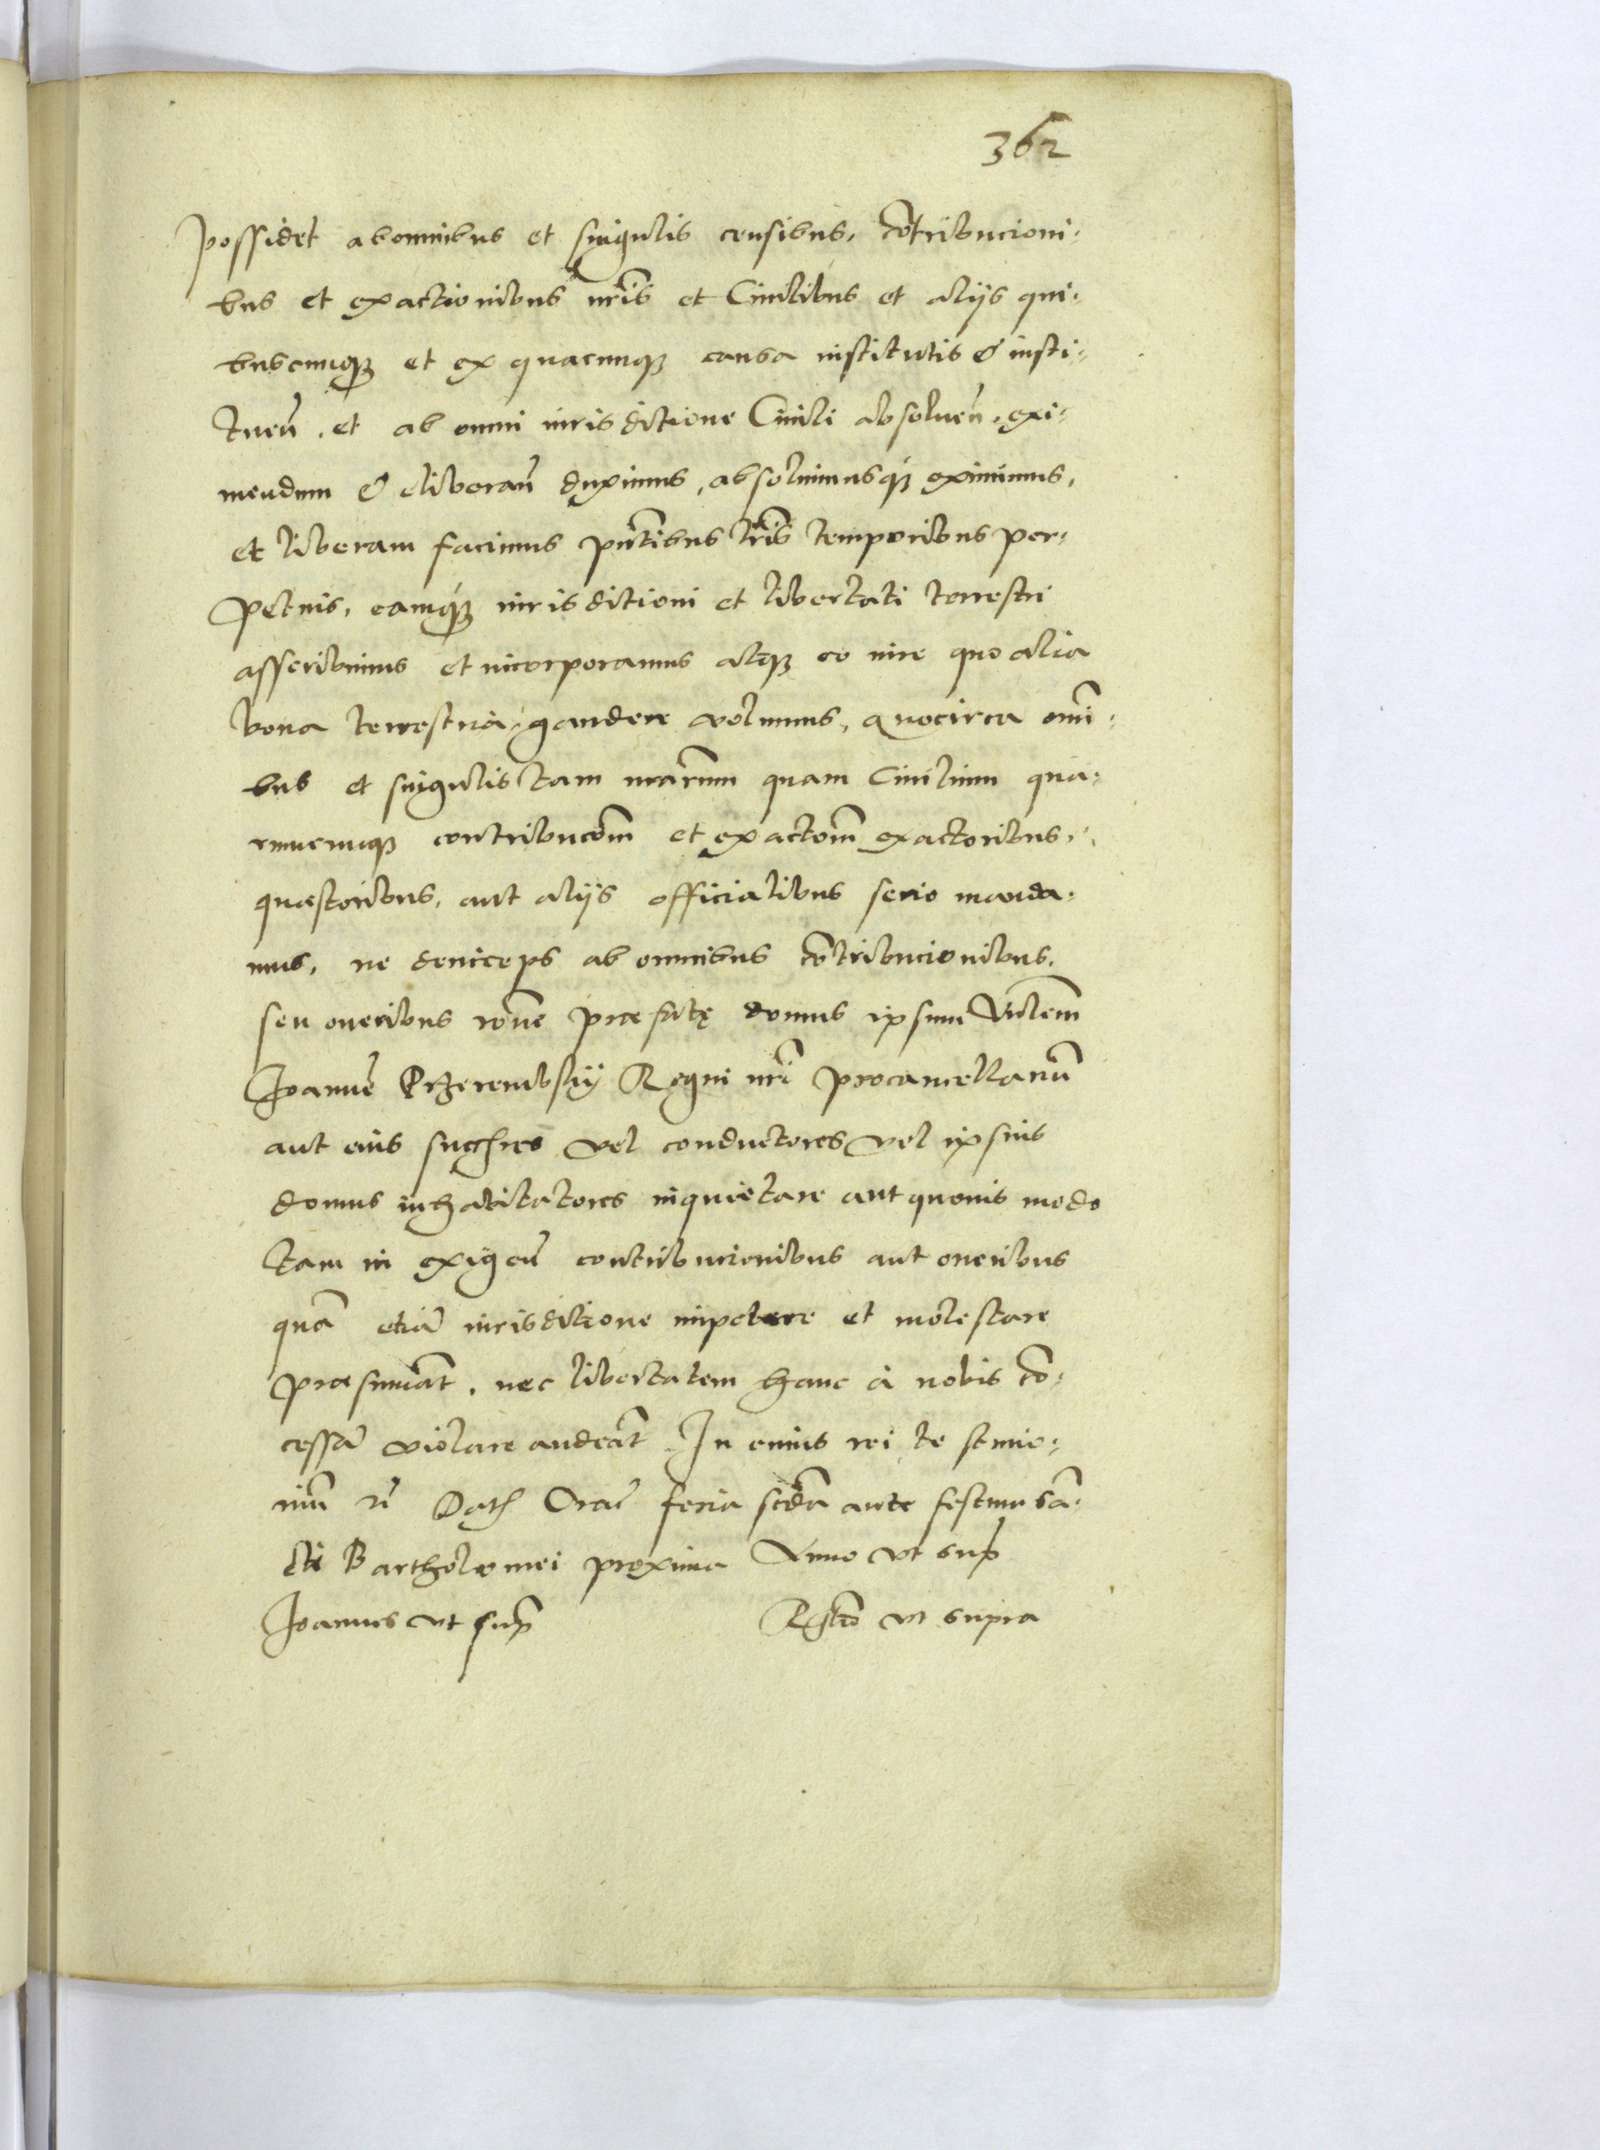 362
possidet ab omnibus et singulis censibus, cõtribucioni-
bus et exactionibus nr̃is et Ciuilibus et alijs qui-
buscunq̃ et ex quacunq̃ causa institutis & insti-
tueñ. et ab omni iurisditione Ciuili absolueñ. exi-
mendum & liberañ duximus, absoluimusq́ꝫ eximimus,
et liberam facimus pñtibus lr̃is temporibus per-
petuis, eamq́ꝫ iurisditioni et libertati terrestri
asscribimus et incorporamus atqꝫ eo iure quo alia
bona terrestria gaudere volumus, quocirca omñi-
bus et singulis tam nrarum quam Ciuilium qua-
rumcunqꝫ contribucõm et exactõm exactoribus,
quaestoribus, aut alijs officialibus serio manda-
mus, ne deinceps ab omnibus cõtribucionibus,
seu oneribus rõne praefatę domus ipsum Vñlem
Joannẽ Przerembsky Regni nr̃i procancellariũ
aut eius succ̃res vel conductores vel ipsius
domus inhabitatores inquietare aut quouis modo
tam in exigeñ contribucionibus aut oneribus
quã etiã iurisditione impetere et molestare
praesumãt, nec libertatem hanc à nobis cõ-
cessã violare audeãt. In cuius rei testimo-
niũ rẽ Dat̃ Crac̃ feria secũda ante festum sã-
cti Bartholomei proxima Anno vt sup̃
Joannes vt sup̃ Rl̃tio vt supra